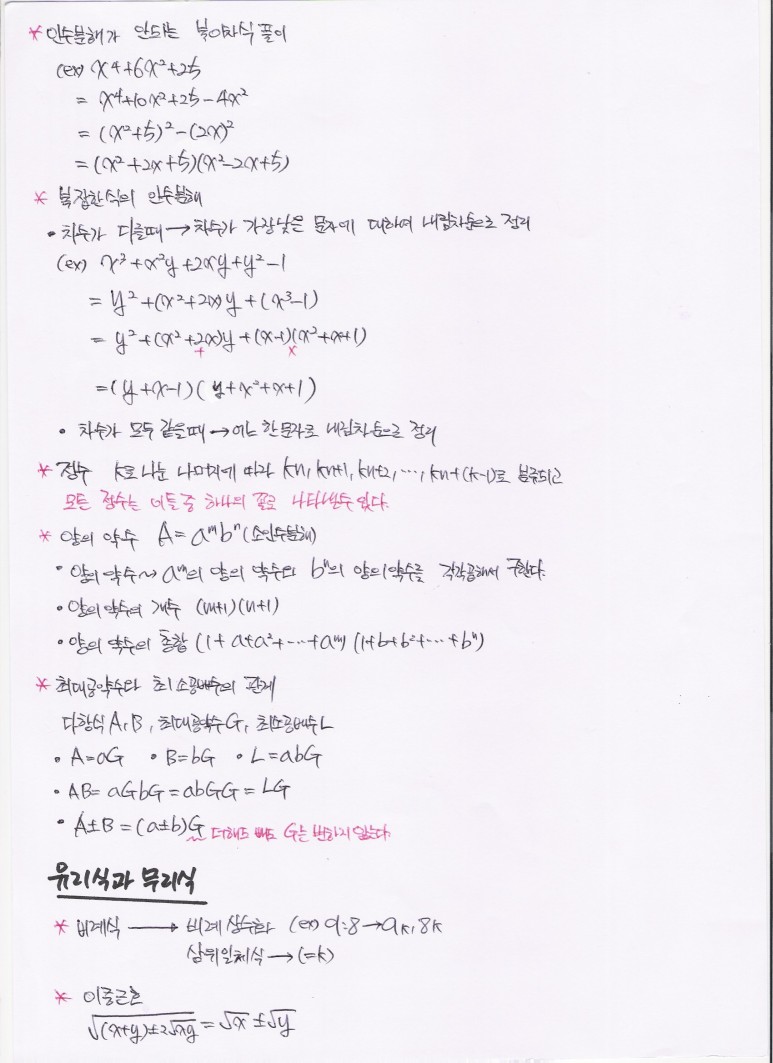 * 인수분해가 안되는 복이차식 풀이
(ex) x⁴+6x²+25
= x⁴+10x²+25-4x²
= (x²+5)²-(2x)²
= (x²+2x+5)(x²-2x+5)
* 복잡한식의 인수분해
• 차수가 다를때 → 차수가 가장낮은 문자에 대하여 내림차순으로 정리
(ex) x³+x²y+2xy+y²-1
= y²+(x²+2x)y+(x³-1)
= y²+(x²+2x)y+(x-1)(x²+x+1)
+ x
=(y+x-1)(y+x²+x+1)
• 차수가 모두 같을때 → 어느 한문자로 내림차순으로 정리
* 정수 k로 나눈 나머지에 따라 kn, kn+1, kn+2, ⋯, kn+(k-1)로 분류되고
모든 정수는 이들 중 하나의 꼴로 나타낼수 있다.
* 양의 약수 A=aᵐbⁿ(소인수분해)
• 양의 약수~ aᵐ의 양의 약수와 bⁿ의 양의약수를 각각곱해서 구한다.
• 양의 약수의 개수 (m+1)(n+1)
• 양의 약수의 총합 (1+a+a²+⋯+aᵐ)(1+b+b²+⋯+bⁿ)
* 최대공약수와 최소공배수의 관계
다항식 A, B, 최대공약수 G, 최소공배수 L
• A=aG • B=bG • L=abG
• AB= aGbG = abGG = LG
• A±B = (a±b)G 더해도 빼도 G는 변하지 않는다.
유리식과 무리식
* 비례식 → 비례상수화 (ex) 9:8→9k, 8k
삼위일체식→(=k)
* 이중근호
√((x+y)±2√xy) = √x ± √y